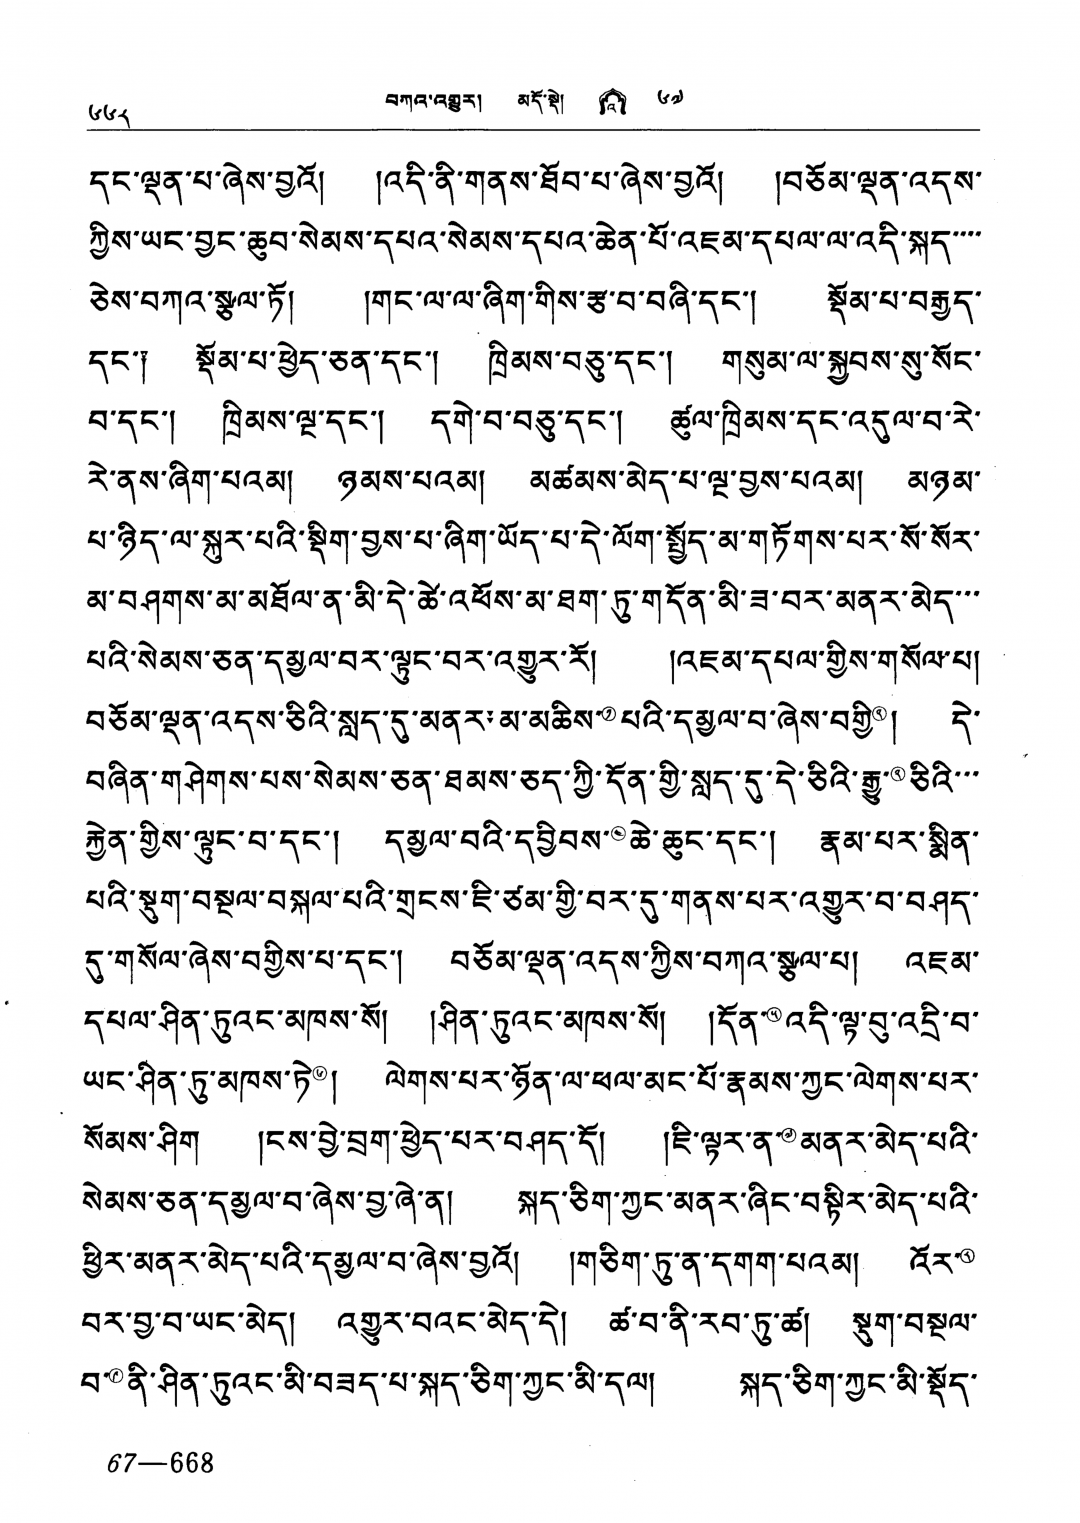 ༦༦༨ བཀའ་འགྱུར། མདོ་སྡེ། འ ༦༧
དང་ལྡན་པ་ཞེས་བྱའོ། །འདི་ནི་གནས་ཐོབ་པ་ཞེས་བྱའོ། །བཅོམ་ལྡན་འདས་
ཀྱིས་ཡང་བྱང་ཆུབ་སེམས་དཔའ་སེམས་དཔའ་ཆེན་པོ་འཇམ་དཔལ་ལ་འདི་སྐད་
ཅེས་བཀའ་སྩལ་ཏོ། །གང་ལ་ལ་ཞིག་གིས་རྩ་བ་བཞི་དང་། སྡོམ་པ་བརྒྱད་
དང་༑ སྡོམ་པ་ཕྱེད་ཅན་དང་། ཁྲིམས་བཅུ་དང་། གསུམ་ལ་སྐྱབས་སུ་སོང་
བ་དང་། ཁྲིམས་ལྔ་དང་། དགེ་བ་བཅུ་དང་། ཚུལ་ཁྲིམས་དང་འདུལ་བ་རེ་
རེ་ནས་ཞིག་པའམ། ཉམས་པའམ། མཚམས་མེད་པ་ལྔ་བྱས་པའམ། མཉམ་
པ་ཉིད་ལ་སྐུར་པའི་སྡིག་བྱས་པ་ཞིག་ཡོད་པ་དེ་ལོག་སྤྱོད་མ་གཏོགས་པར་སོ་སོར་
མ་བཤགས་མ་མཐོལ་ན་མི་དེ་ཚེ་འཕོས་མ་ཐག་ཏུ་གདོན་མི་ཟ་བར་མནར་མེད་
པའི་སེམས་ཅན་དམྱལ་བར་ལྟུང་བར་འགྱུར་རོ། །འཇམ་དཔལ་གྱིས་གསོལ་པ།
བཅོམ་ལྡན་འདས་ཅིའི་སླད་དུ་མནར་མ་མཆིས་༡པའི་དམྱལ་བ་ཞེས་བགྱི༢། དེ་
བཞིན་གཤེགས་པས་སེམས་ཅན་ཐམས་ཅད་ཀྱི་དོན་གྱི་སླད་དུ་དེ་ཅིའི་རྒྱུ་༣ཅིའི་
རྐྱེན་གྱིས་ལྟུང་བ་དང་། དམྱལ་བའི་དབྱིབས་༤ཆེ་ཆུང་དང་། རྣམ་པར་སྨིན་
པའི་སྡུག་བསྔལ་བསྐལ་པའི་གྲངས་ཇི་ཙམ་གྱི་བར་དུ་གནས་པར་འགྱུར་བ་བཤད་
དུ་གསོལ་ཞེས་བགྱིས་པ་དང་། བཅོམ་ལྡན་འདས་ཀྱིས་བཀའ་སྩལ་པ། འཇམ་
དཔལ་ཤིན་ཏུའང་མཁས་སོ། །ཤིན་ཏུའང་མཁས་སོ། །དོན་༥འདི་ལྟ་བུ་འདྲི་བ་
ཡང་ཤིན་ཏུ་མཁས་ཏེ༦། ལེགས་པར་ཉོན་ལ་ཕལ་མང་པོ་རྣམས་ཀྱང་ལེགས་པར་
སོམས་ཤིག །ངས་བྱེ་བྲག་ཕྱེད་པར་བཤད་དོ། །ཇི་ལྟར་ན་༧མནར་མེད་པའི་
སེམས་ཅན་དམྱལ་བ་ཞེས་བྱ་ཞེ་ན། སྐད་ཅིག་ཀྱང་མནར་ཞིང་བསྟིར་མེད་པའི་
ཕྱིར་མནར་མེད་པའི་དམྱལ་བ་ཞེས་བྱའོ། །གཅིག་ཏུ་ན་དགག་པའམ། འོར་༨
བར་བྱ་བ་ཡང་མེད། འགྱུར་བའང་མེད་དེ། ཚ་བ་ནི་རབ་ཏུ་ཚ། སྡུག་བསྔལ་
བ་༩ནི་ཤིན་ཏུའང་མི་བཟད་པ་སྐད་ཅིག་ཀྱང་མི་དལ། སྐད་ཅིག་ཀྱང་མི་སྡོད་
67—668